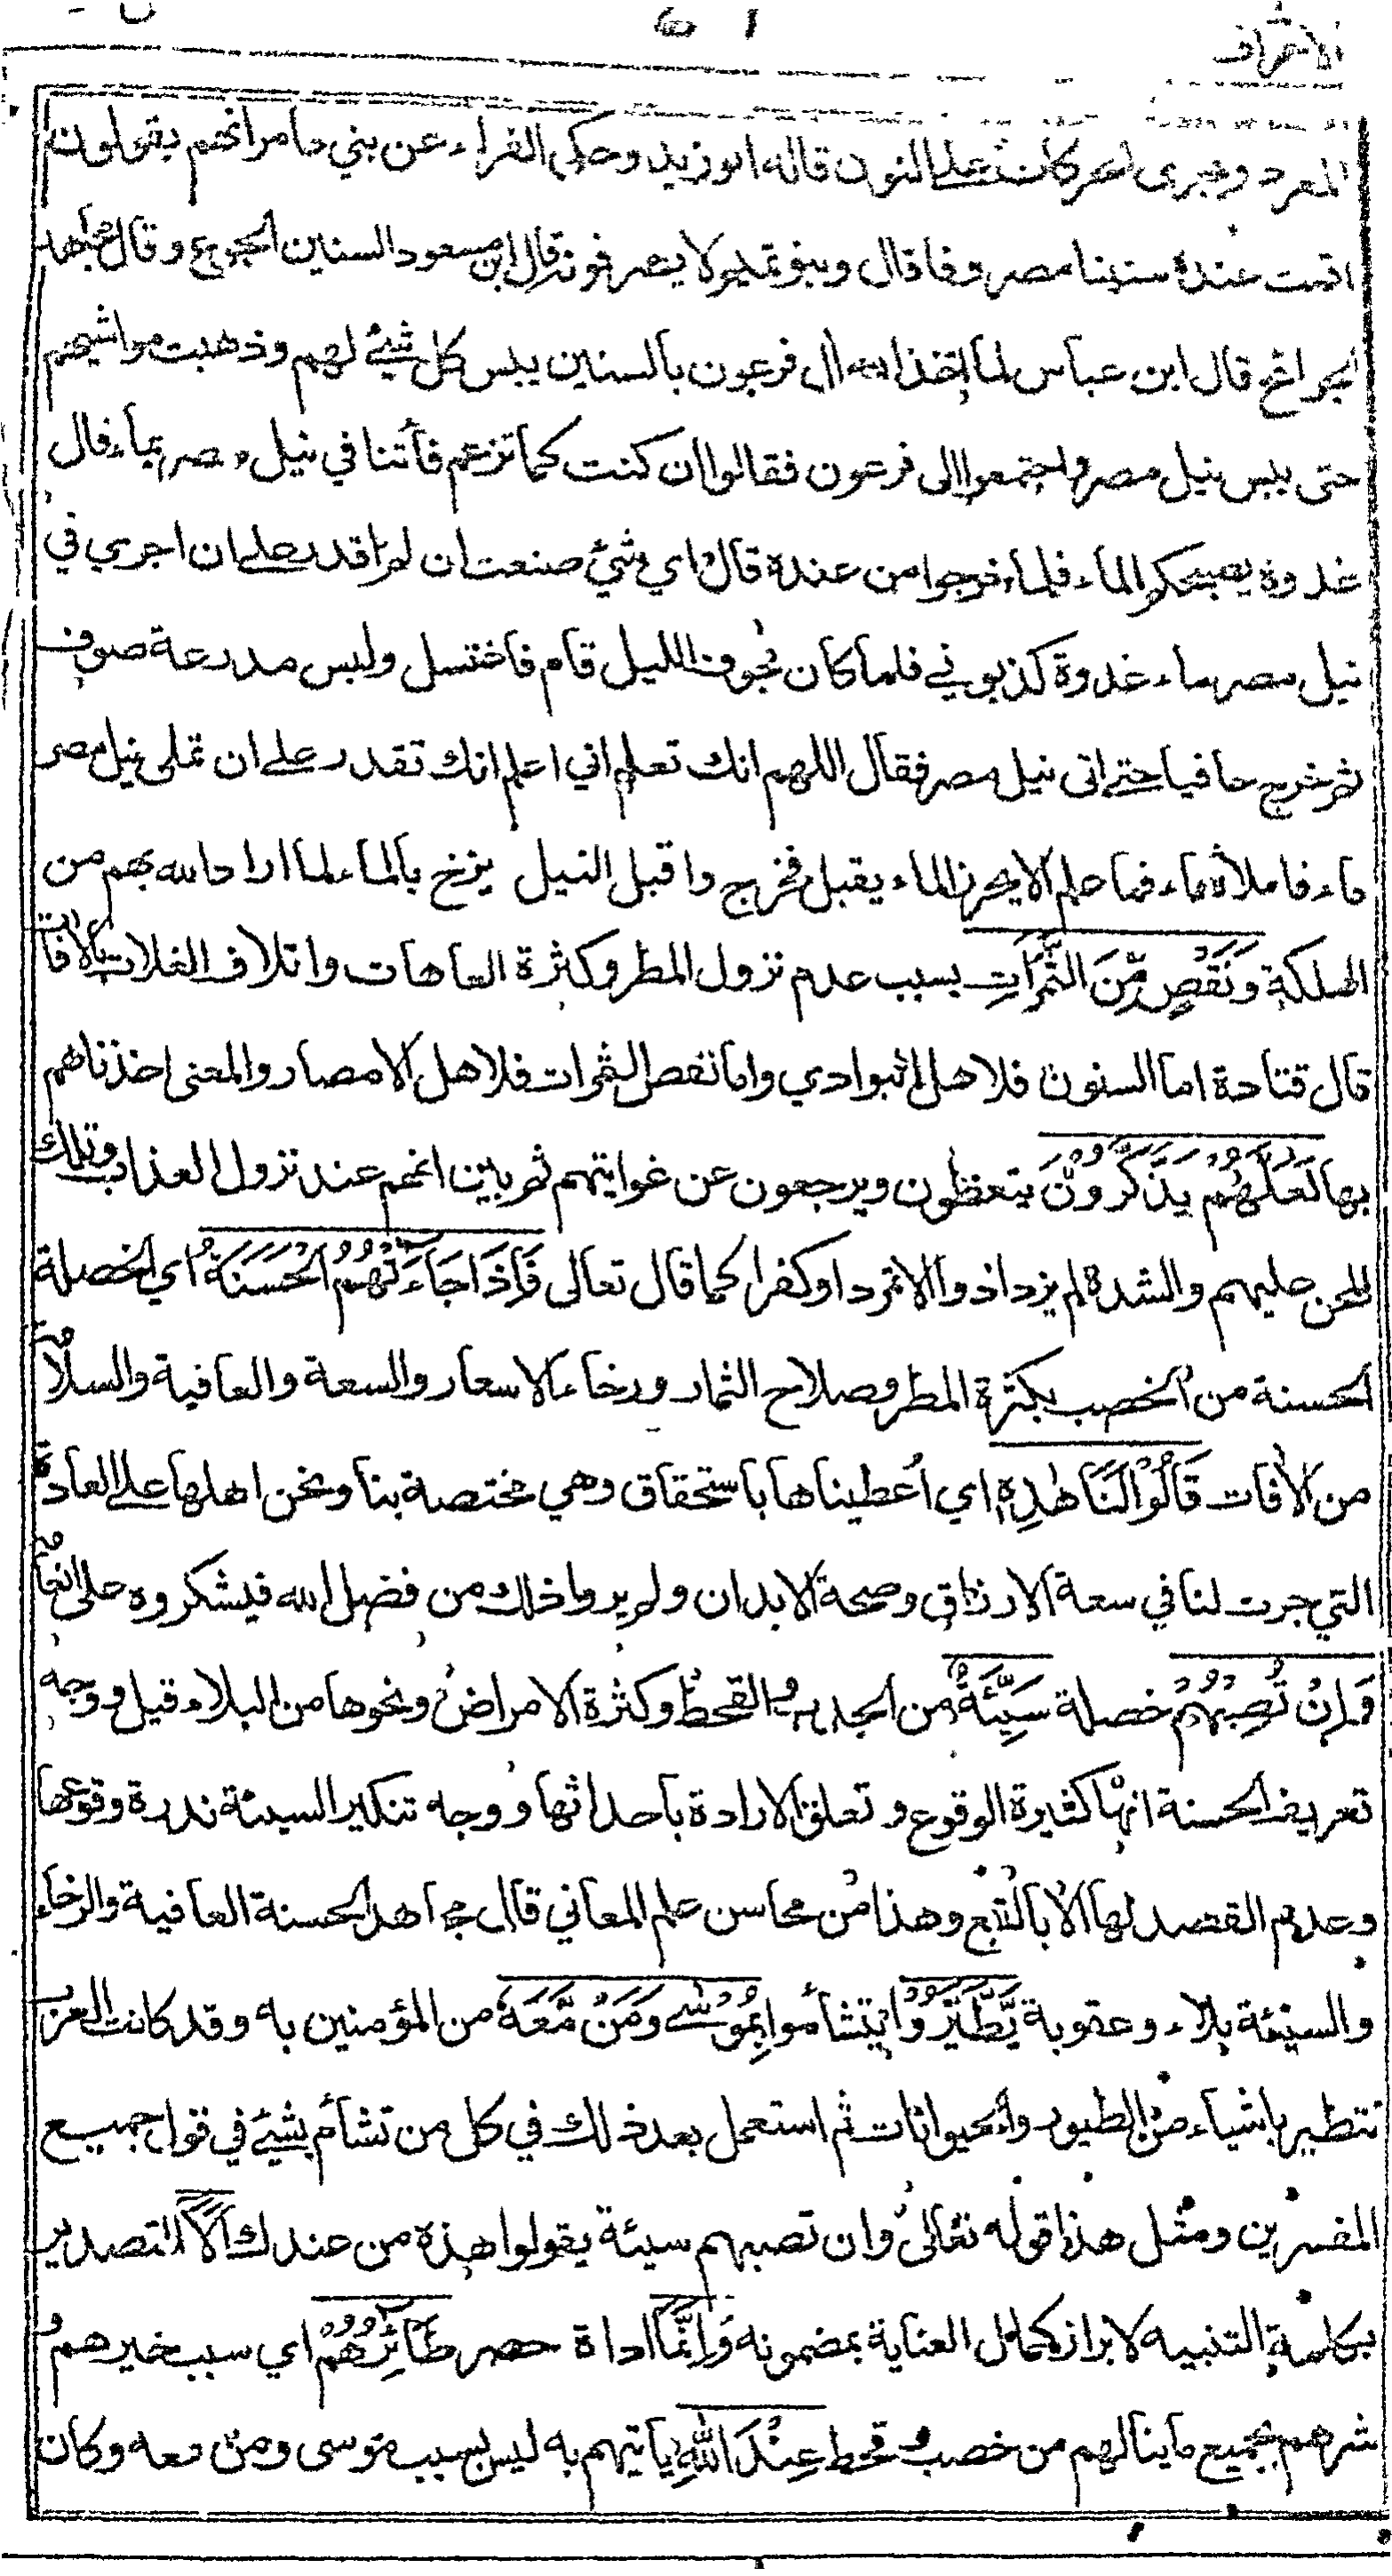 الاعراف
المفرد وتجري الحركات على النون قاله ابو زيد وحكى الفراء عن بني عامر انهم يقولون
اقمت عنده سنينا مصروفا قال وبنو تميم لا يصرفونه قال ابن مسعود السنين الجوع وقال مجاهد
الجوائح قال ابن عباس لما اخذ الله ال فرعون بالسنين يبس كل شيئ لهم وذهبت مواشيهم
حتى يبس نيل مصر واجتمعوا الى فرعون فقالوا ان كنت كما تزعم فأتنا في نيل مصر بماء قال
غدوة يصبحكم الماء فلما خرجوا من عنده قال اي شيئ صنعت ان لم اقدر على ان اجري في
نيل مصر ماء غدوة كذبوني فلما كان بجوف الليل قام فاغتسل ولبس مدرعة صوف
ثم خرج حافيا حتى اتى نيل مصر فقال اللهم انك تعلم اني اعلم انك تقدر على ان تملى نيل مصر
ماء فاملأه ماء فما علم الا بخرير الماء يقبل فخرج واقبل النيل يزخ بالماء لما اراد الله بهم من
الهلكة وَنَقْصٍ مِّنَ الثَّمَرَاتِ بسبب عدم نزول المطر وكثرة العاهات واتلاف الغلات بالآفات
قال قتادة اما السنون فلاهل البوادي واما نقص الثمرات فلاهل الامصار والمعنى اخذناهم
بها لَعَلَّهُمْ يَذَّكَّرُوْنَ يتعظون ويرجعون عن غوايتهم ثم بين انهم عند نزول العذاب وتلك
المحن عليهم والشدة لم يزدادوا الا تمردا وكفرا كما قال تعالى فَإِذَا جَاءَتْهُمُ الْحَسَنَةُ اي الخصلة
الحسنة من الخصب بكثرة المطر وصلاح الثمار ورخاء الاسعار والسعة والعافية والسلامة
من الآفات قَالُوْا لَنَا هٰذِهٖ اي أعطيناها باستحقاق وهي مختصة بنا ونحن اهلها على العادة
التي جرت لنا في سعة الارزاق وصحة الابدان ولم يروا ذلك من فضل الله فيشكروه على انعامه
وَإِنْ تُصِبْهُمْ خصلة سَيِّئَةٌ من الجدب والقحط وكثرة الامراض ونحوها من البلاء قيل ووجه
تعريف الحسنة انها كثيرة الوقوع وتعلق الارادة باحداثها ووجه تنكير السيئة ندرة وقوعها
وعدم القصد لها الا بالتبع وهذا من محاسن علم المعاني قال مجاهد الحسنة العافية والرخاء
والسيئة بلاء وعقوبة يَّطَّيَّرُوْا يتشأموا بِمُوْسٰى وَمَنْ مَّعَهٗ من المؤمنين به وقد كانت العرب
تتطير باشياء من الطيور والحيوانات ثم استعمل بعد ذلك في كل من تشأم بشيئ في قول جميع
المفسرين ومثل هذا قوله تعالى وان تصبهم سيئة يقولوا هذه من عندك أَلَا التصدير
بكلمة التنبيه لابراز كمال العناية بمضمونه وَإِنَّمَا اداة حصر طَائِرُهُمْ اي سبب خيرهم و
شرهم بجميع ما ينالهم من خصب وقحط عِنْدَ اللهِ يأتيهم به ليس بسبب موسى ومن معه وكان